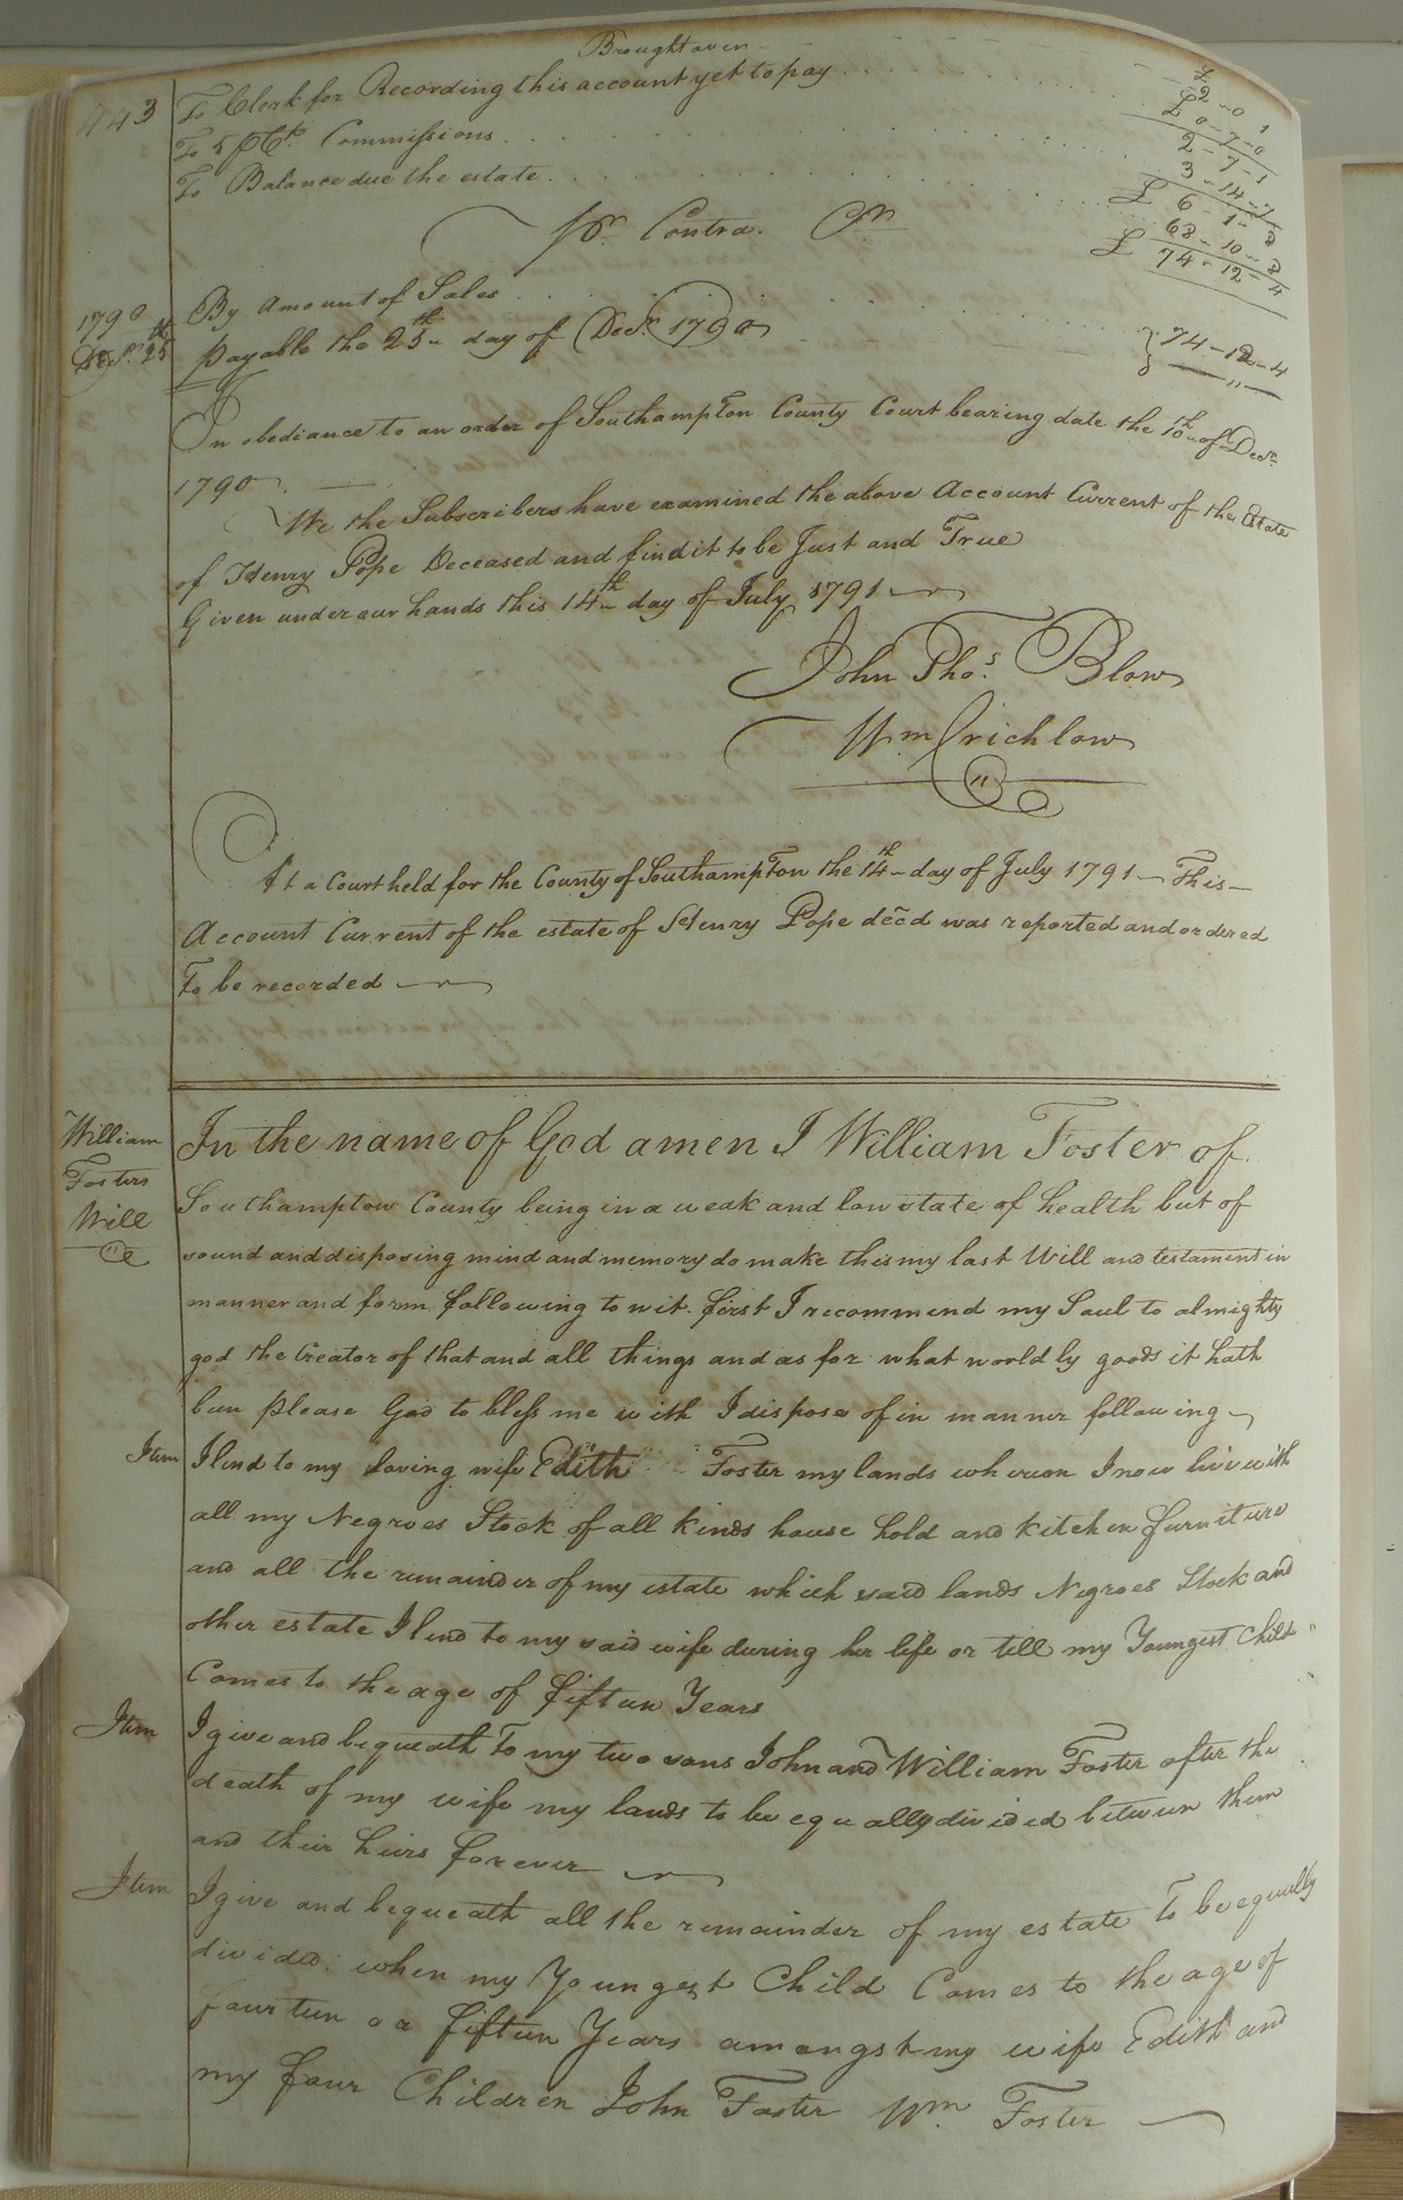 Brought over
443
To Clerk for Recording this account yet to pay
£ 2 - 0 1
To 5 p Ct. Commissions
£ 0 - 7 - 0
2 - 7 - 1
To Balance due the estate
3 - 14 - 7
£ 6 - 1 - 8
68 - 10 - 8
£ 74 - 12 - 4
Pr. Contra. Cr
1790
Decr. 25th
By Amount of Sales
payable the 25th day of Decr. 1790
74 - 12 - 4
In obediance to an order of Southampton County Court bearing date the 10th of Decr.
1790.
We the Subscribers have examined the above Account Current of the Estate
of Henry Pope Deceased and find it to be Just and True
Given under our hands this 14th day of July 1791
John Thos. Blow
Wm Crichlow
At a Court held for the County of Southampton the 14th day of July 1791 This
Account Current of the estate of Henry Pope decd was reported and ordered
To be recorded
William
Fosters
Will
In the name of God amen I William Foster of
Southampton County being in a weak and low state of health but of
sound and disposing mind and memory do make this my last Will and testament in
manner and form following to wit. first I recommend my Soul to almighty
god the Creator of that and all things and as for what worldly goods it hath
been please God to bless me with I dispose of in manner following
Item I lend to my loving wife Edith Foster my lands whereon I now live with
all my Negroes Stock of all kinds house hold and kitchen furniture
and all the remainder of my estate which said lands Negroes Stock and
other estate I lend to my said wife during her life or till my Youngest Child
Comes to the age of fifteen Years
Item I give and bequeath To my two sons John and William Foster after the
death of my wife my lands to be equally divided between them
and their heirs forever
Item I give and bequeath all the remainder of my estate To be equally
divided when my Youngest Child Comes to the age of
fourteen or fifteen Years amongst my wife Edith and
my four Children John Foster Wm Foster